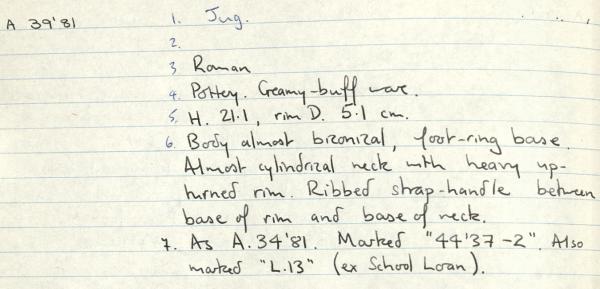 A 39'81 1. Jug.
2.
3 Roman
4. Pottery. Creamy-buff ware.
5. H. 21.1, rim D. 5.1 cm.
6. Body almost biconical, foot-ring base.
Almost cylindrical neck with heavy up-
turned rim. Ribbed strap-handle between
base of rim and base of neck.
7. As A.34'81. Marked "44'37-2". Also
marked "L.13" (ex School Loan).